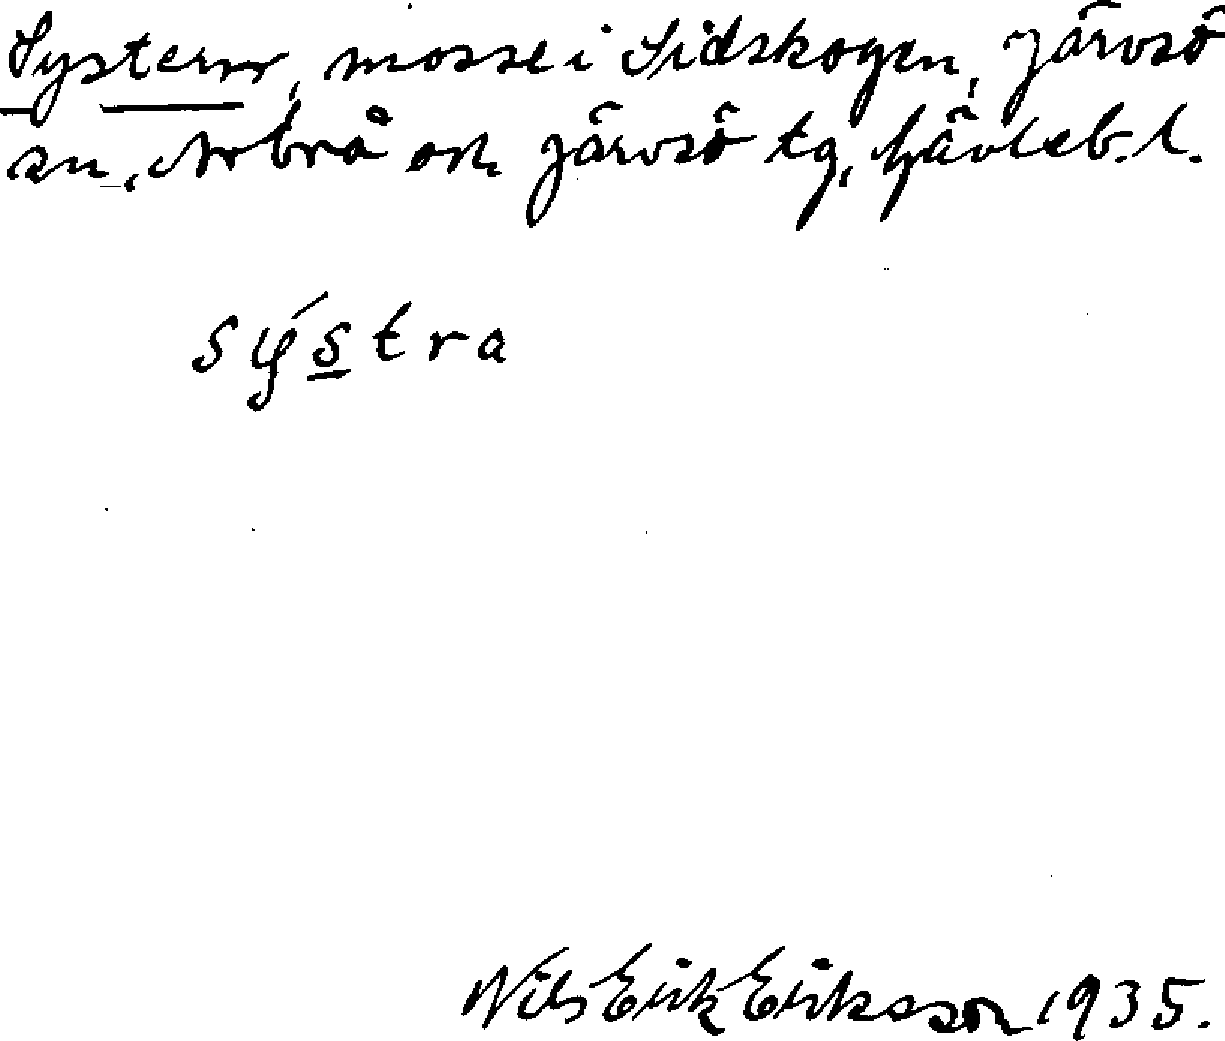 Systern, mosse i Sidskogen, Järvsö
sn, Arbrå och Järvsö tg, Gävleb. l.
sýstra
Nils Erik Eriksson 1935.